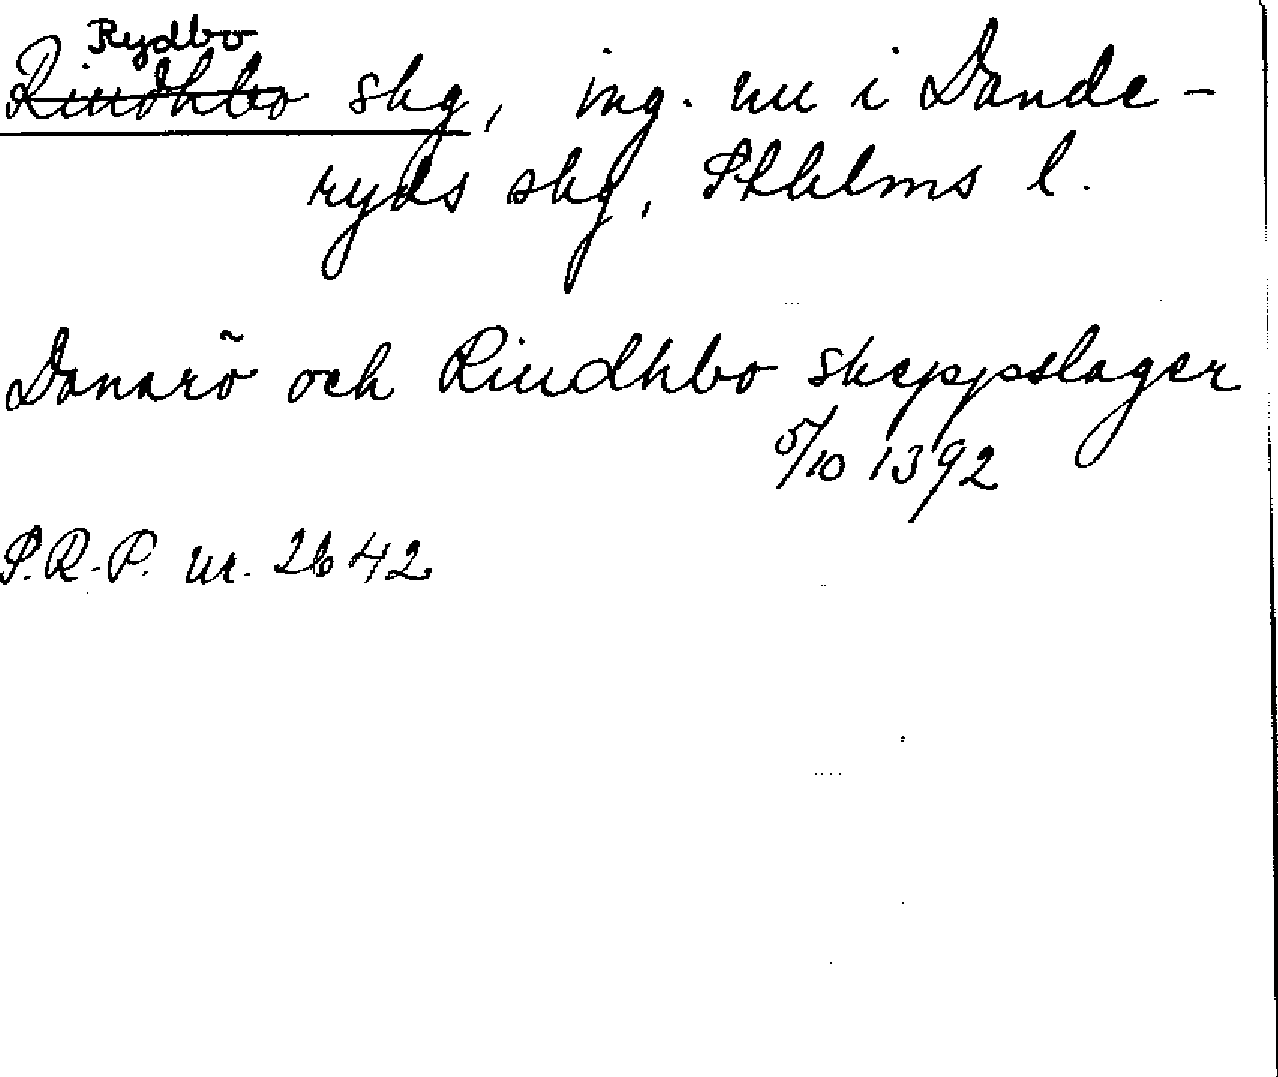 Rydbo
Rindhbo skg, ing. nu i Dande-
ryds skg, Sthlms l.
Danarö och Rindhbo skeppslager
5/10 1392
S.R.P. nr. 2642